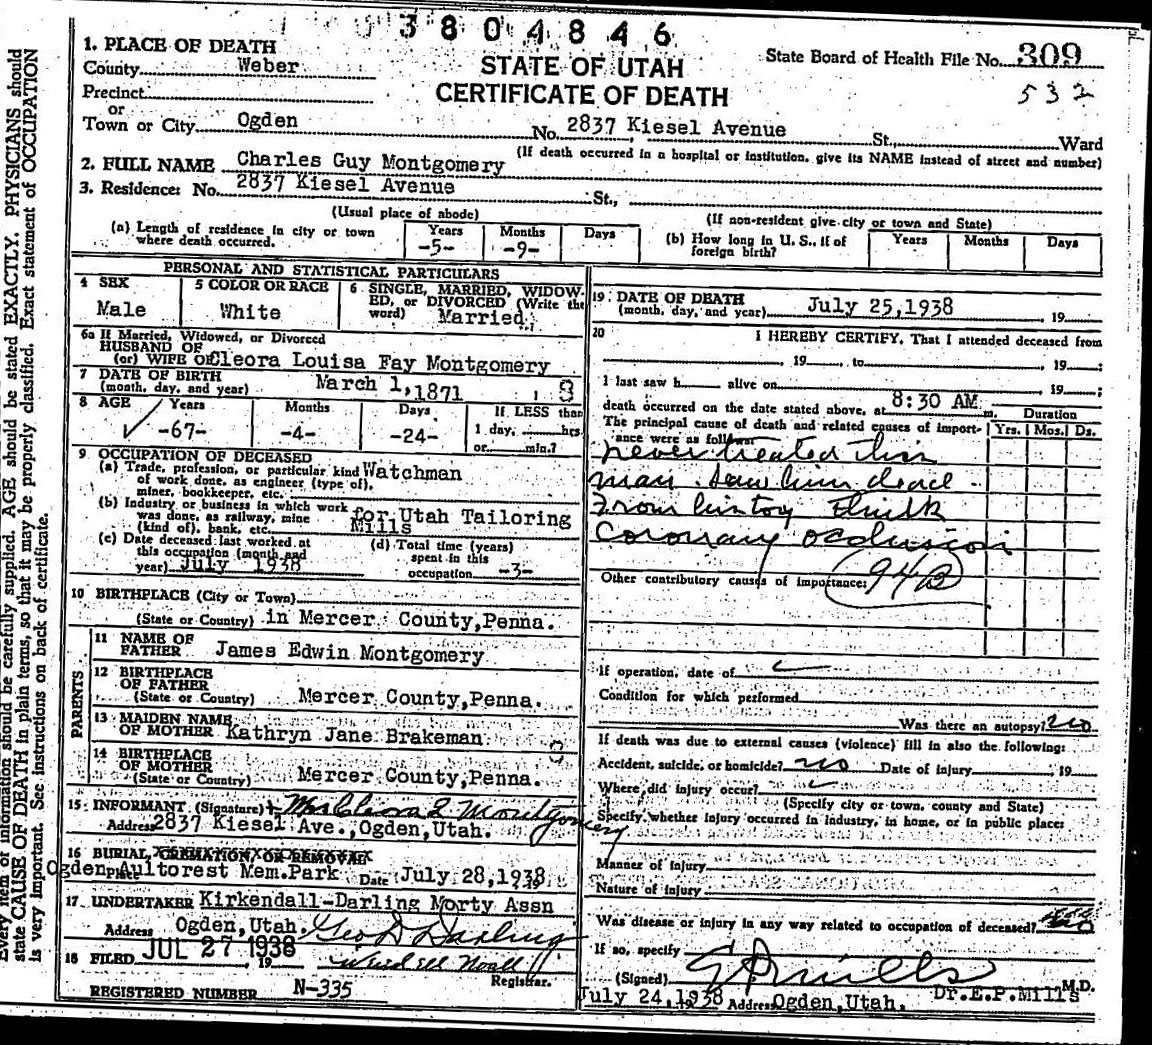 3804846
1. PLACE OF DEATH
County Weber
STATE OF UTAH
State Board of Health File No. 309
Precinct
CERTIFICATE OF DEATH
532
or
Town or City Ogden No. 2837 Kiesel Avenue St., Ward
(If death occurred in a hospital or institution, give its NAME instead of street and number)
2. FULL NAME Charles Guy Montgomery
3. Residence: No. 2837 Kiesel Avenue St.,
(Usual place of abode)
(If non-resident give city or town and State)
(a) Length of residence in city or town where death occurred. Years -5- Months -9- Days
(b) How long in U. S., if of foreign birth? Years Months Days
PERSONAL AND STATISTICAL PARTICULARS
4 SEX Male
5 COLOR OR RACE White
6 SINGLE, MARRIED, WIDOW-
ED, or DIVORCED (Write the
word) Married
6a If Married, Widowed, or Divorced
HUSBAND OF
(or) WIFE OF Cleora Louisa Fay Montgomery
7 DATE OF BIRTH
(month, day, and year) March 1, 1871
8 AGE Years -67- Months -4- Days -24- If LESS than
1 day, hrs.
or min.?
9 OCCUPATION OF DECEASED
(a) Trade, profession, or particular kind Watchman
of work done, as engineer (type of),
miner, bookkeeper, etc.
(b) Industry or business in which work for Utah Tailoring
was done, as railway, mine Mills
(kind of), bank, etc.
(c) Date deceased last worked at
this occupation (month and
year) July 1938
(d) Total time (years)
spent in this
occupation -3-
10 BIRTHPLACE (City or Town)
(State or Country) in Mercer County, Penna.
PARENTS
11 NAME OF
FATHER James Edwin Montgomery
12 BIRTHPLACE
OF FATHER
(State or Country) Mercer County, Penna.
13 MAIDEN NAME
OF MOTHER Kathryn Jane Brakeman
14 BIRTHPLACE
OF MOTHER
(State or Country) Mercer County, Penna.
15 INFORMANT (Signature) Mrs Cleora L Montgomery
Address 2837 Kiesel Ave., Ogden, Utah.
16 BURIAL, CREMATION, OR REMOVAL
Ogden Place Aultorest Mem. Park Date July 28, 1938
17 UNDERTAKER Kirkendall-Darling Morty Assn
Address Ogden, Utah. Geo D Darling
18 FILED JUL 27 1938 19
Registrar.
REGISTERED NUMBER N-335
19 DATE OF DEATH
(month, day, and year) July 25, 1938 19
20 I HEREBY CERTIFY, That I attended deceased from
19 to 19 ;
I last saw h alive on 19 ;
death occurred on the date stated above, at 8:30 AM m.
Duration
Yrs. Mos. Ds.
The principal cause of death and related causes of import-
ance were as follows:
never treated this
man. Saw him dead -
From history think
Coronary occlusion
Other contributory causes of importance: 94B
If operation, date of
Condition for which performed
Was there an autopsy? no
If death was due to external causes (violence) fill in also the following:
Accident, suicide, or homicide? no Date of injury 19
Where did injury occur?
(Specify city or town, county and State)
Specify whether injury occurred in industry, in home, or in public place:
Manner of injury
Nature of injury
Was disease or injury in any way related to occupation of deceased? no
If so, specify
(Signed) E P Mills M.D.
Dr. E. P. Mills
July 24, 1938 19 Address Ogden, Utah.
Every item of information should be carefully supplied. AGE should be stated EXACTLY. PHYSICIANS should
state CAUSE OF DEATH in plain terms, so that it may be properly classified. Exact statement of OCCUPATION
is very important. See instructions on back of certificate.